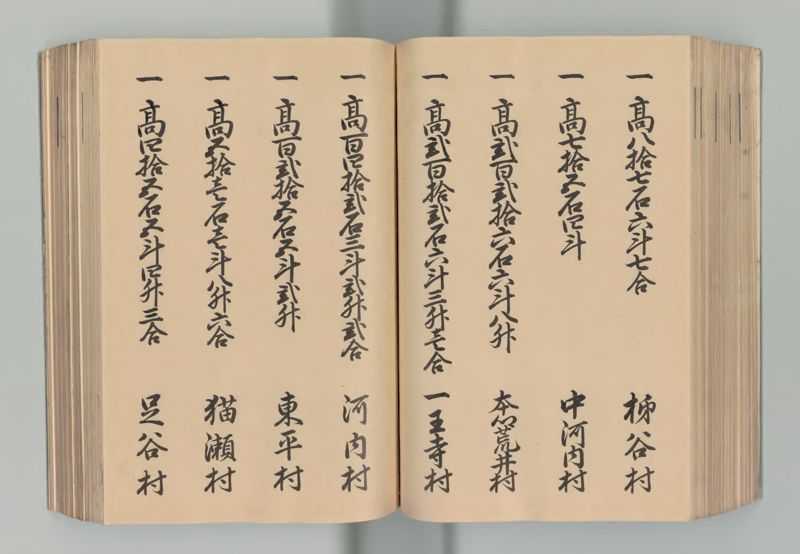 一 高八拾七石六斗七合 柹谷村
一 高七拾五石四斗 中河内村
一 高弐百弐拾六石六斗八升 本荒井村
一 高弐百拾弐石六斗三升壱合 一王寺村
一 高百四拾弐石三斗弐升弐合 河内村
一 高百弐拾五石五斗弐升 東平村
一 高五拾壱石壱斗八升六合 猫瀬村
一 高四拾五石五斗四升三合 足谷村